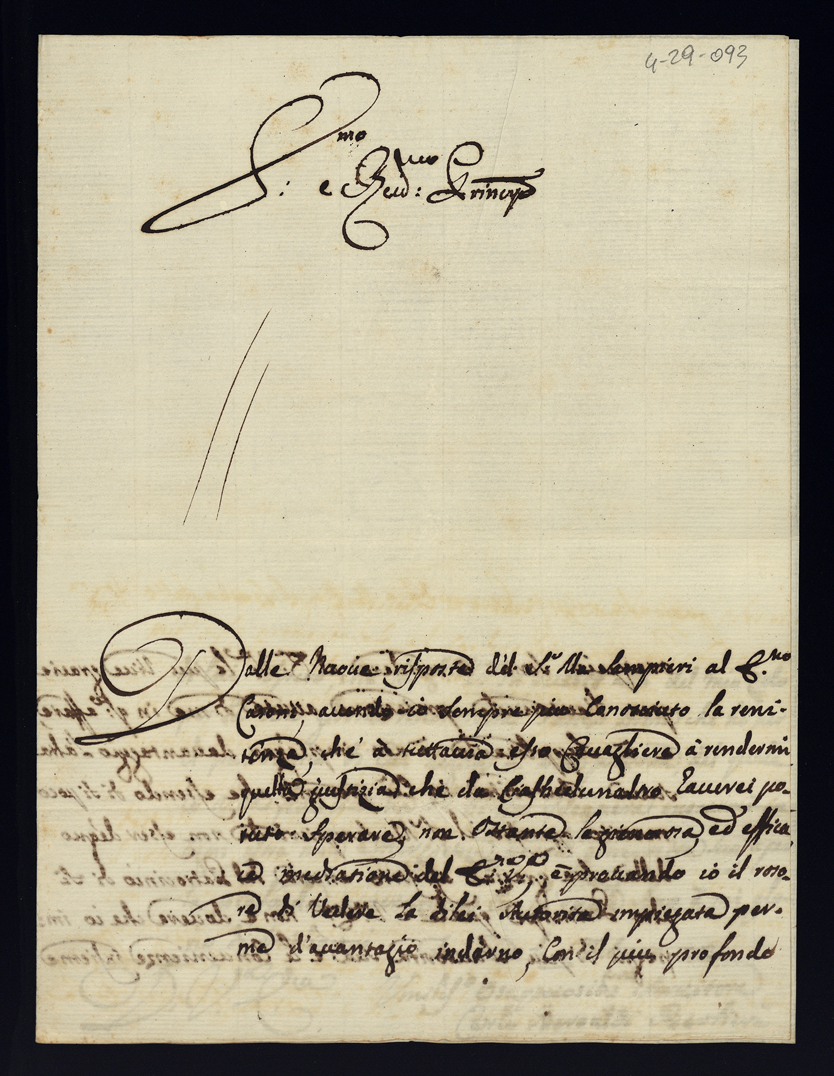 4-29-093
E:mo e Reud:mo Principe
Dalle Nuoue risposte del Sr Ma Sempieri al E.mo
Caroni, auendo io sempre piu Conosciuto la reni-
tenza, che à tuttauia esso Caualiere à rendermi
quella giustizia che da qualunaltro l'auerei po-
tuto sperare, non Ostante la generosa, ed effica
ce mediazione del E:mo, e prouando io il roso-
re di Vedere la di lei Autorità impiegata per-
me d'auantagio indarno, Con il più profondo